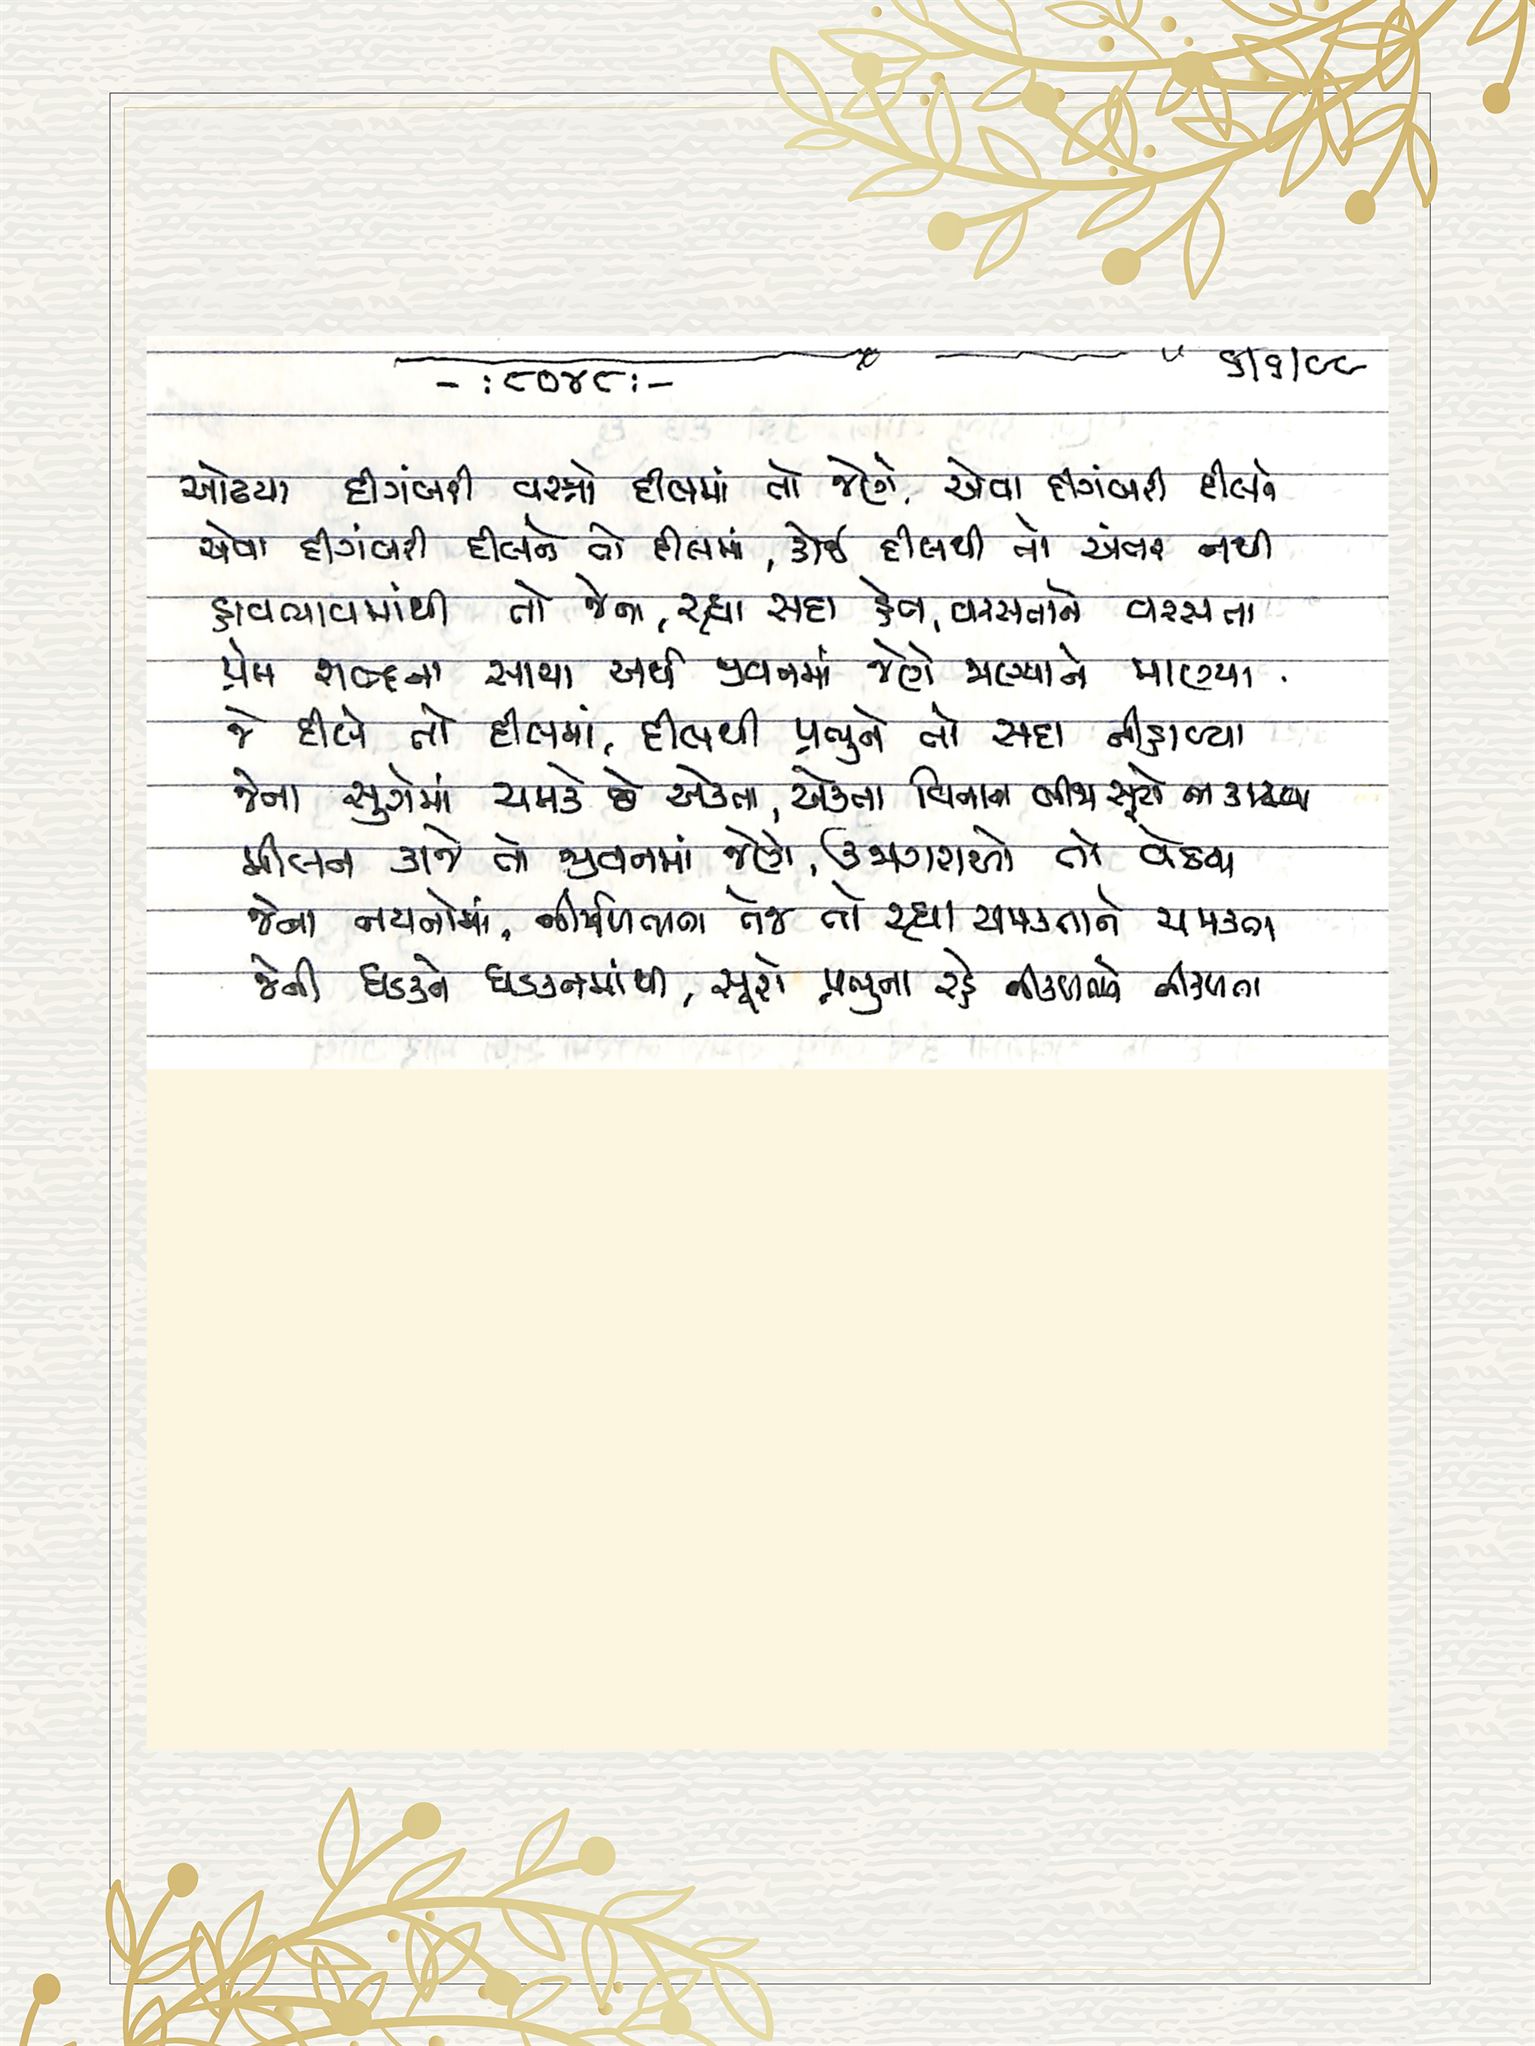 ૬/૧/૯૯
- :૮૦૪૮:-
ઓઢયા દીગંબરી વસ્ત્રો દીલમાં તો જેણે, એવા દીગંબરી દીલને
એવા દીગંબરી દીલને તો દીલમાં, કોઈ દીલથી તો અંતર નથી
હાવભાવમાંથી તો જેના, રહ્યા સદા હેત, વરસતાને વરસતા
પ્રેમ શબ્દના સાચા અર્થ જીવનમાં જેણે જાણ્યાને માણ્યા.
જે દીલે તો દીલમાં, દીલથી પ્રભુને તો સદા નીહાળ્યા
જેના સુગમાં ચમકે છે એકતા, એકતા વિનાના બીજા સૂરો ના કાઢયા
મીલન કાજે તો જીવનમાં જેણે, ઉજાગરાઓ તો વેઠયા
જેના નયનોમાં, નીર્મળતાના તેજ તો રહ્યા ચમકતાને ચમકતા
જેની ધડકને ધડકનમાંથી, સૂરો પ્રભુના રહે નીકળતાને નીકળતા